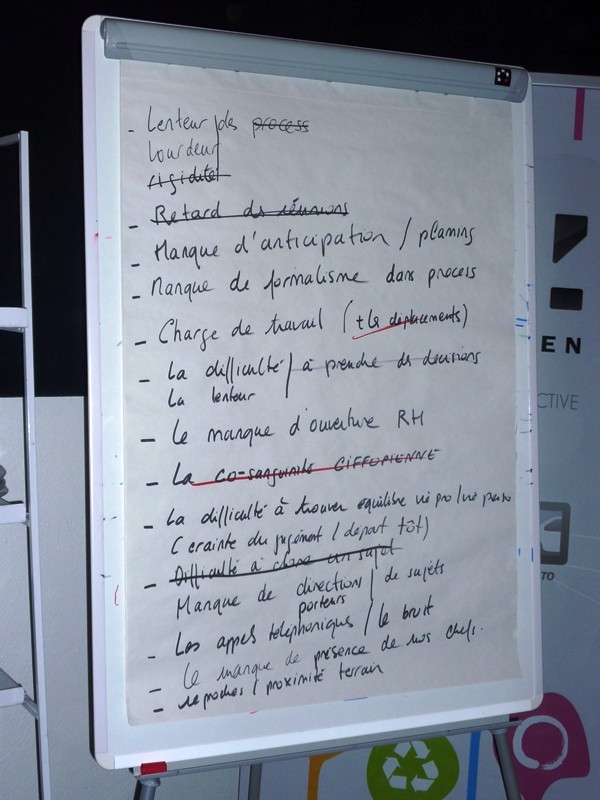 - Lenteur des process
Lourdeur
rigidité
- Retard des réunions
- Manque d'anticipation / planing
- Manque de formalisme dans process
- Charge de travail (+ les déplacements)
- La difficulté / à prendre des décisions
La lenteur
- Le manque d'ouverture RH
- La co-sanguinité GIFFOPIENNE
- La difficulté à trouver équilibre vie pro / vie perso
(crainte du jugement / départ tôt)
- Difficulté à clore un sujet
Manque de directions / de sujets
porteurs
- Les appels téléphoniques / le bruit
- Le manque de présence de nos chefs.
- reproches / proximité terrain
EN
CTIVE
TO